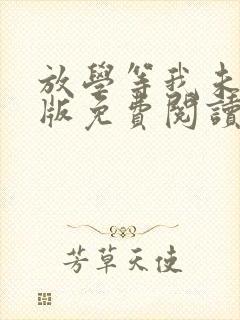 放學等我未
版免費閱讀
芳草天使